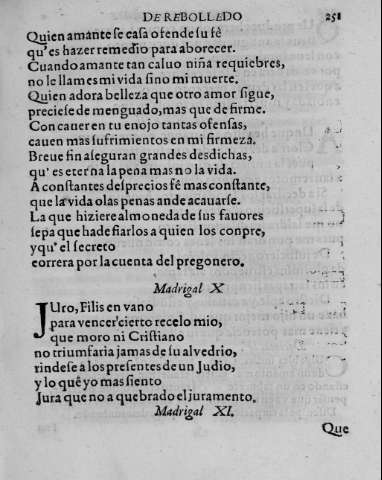 DE REBOLLEDO 251
Quien amante se casa ofende su fê
qu'es hazer remedio para aborecer.
Cuando amante tan caluo niña requiebres,
no le llames mi vida sino mi muerte.
Quien adora belleza que otro amor sigue,
preciese de menguado, mas que de firme.
Con caver en tu enojo tantas ofensas,
caven mas sufrimientos en mi firmeza.
Breve fin aseguran grandes desdichas,
qu' es eterna la pena mas no la vida.
A constantes desprecios fê mas constante,
que la vida o las penas an de acavarse.
La que hiziere almoneda de sus favores
sepa que ha de fiarlos a quien los conpre,
y qu' el secreto
correra por la cuenta del pregonero.
Madrigal X
JUro, Filis en vano
para vencer cierto recelo mio,
que moro ni Cristiano
no triumfaria jamas de su alvedrio,
rindese a los presentes de un Judio,
y lo quê yo mas siento
Jura que no a quebrado el juramento.
Madrigal XI.
Que